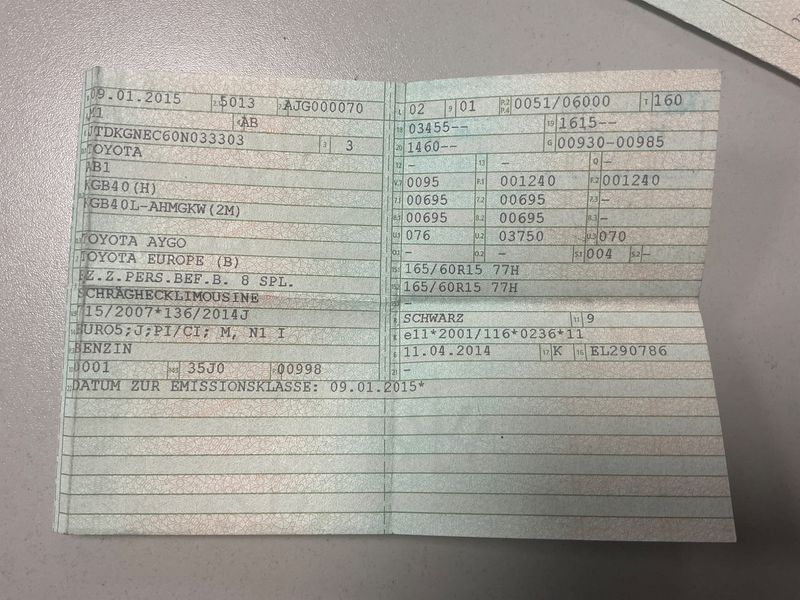 09.01.2015 2.1 5013 2.2 AJG000070
M1 4 AB
JTDKGNEC60N033303 3 3
TOYOTA
AB1
KGB40(H)
KGB40L-AHMGKW(2M)
TOYOTA AYGO
TOYOTA EUROPE (B)
FZ.Z.PERS.BEF.B. 8 SPL.
SCHRÄGHECKLIMOUSINE
715/2007*136/2014J
EURO5;J;PI/CI; M, N1 I
BENZIN
0001 35J0 00998
DATUM ZUR EMISSIONSKLASSE: 09.01.2015*
L 02 9 01 P.2 P.4 0051/06000 T 160
18 03455-- 19 1615--
20 1460-- G 00930-00985
12 - 13 - Q -
V.7 0095 F.1 001240 F.2 001240
7.1 00695 7.2 00695 7.3 -
8.1 00695 8.2 00695 8.3 -
U.1 076 U.2 03750 U.3 070
O.1 - O.2 - S.1 004 S.2 -
15.1 165/60R15 77H
15.2 165/60R15 77H
-
R SCHWARZ 11 9
K e11*2001/116*0236*11
6 11.04.2014 17 K 16 EL290786
21 -